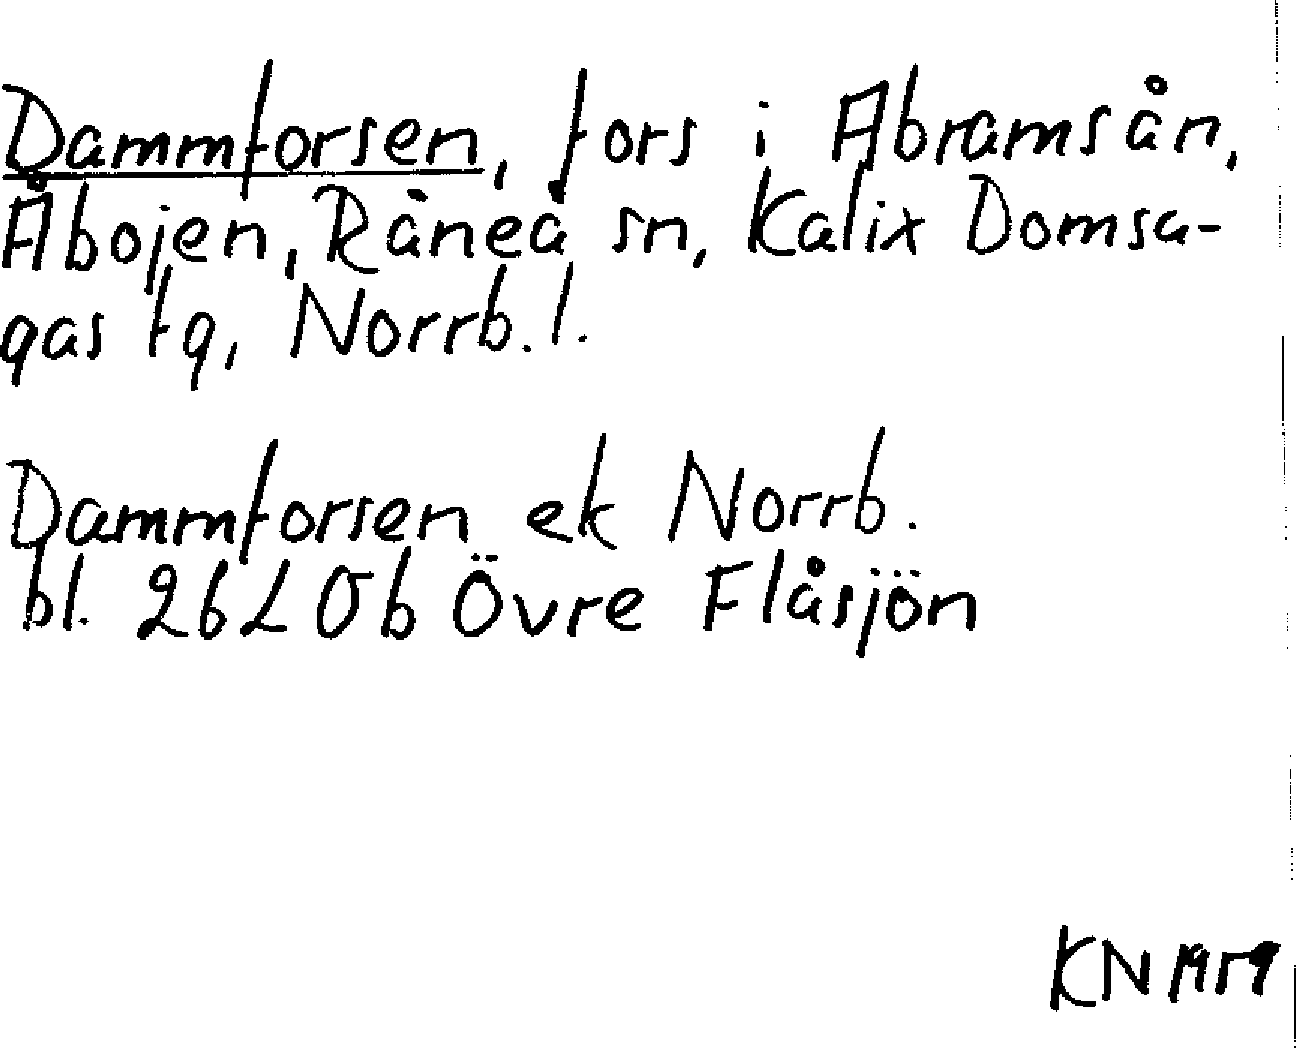 Dammforsen, fors i Abramsån,
Åbojen, Råneå sn, Kalix Domsa-
gas tg, Norrb. l.
Dammforsen ek Norrb.
bl. 26 L 0b Övre Flåsjön
KN 1959